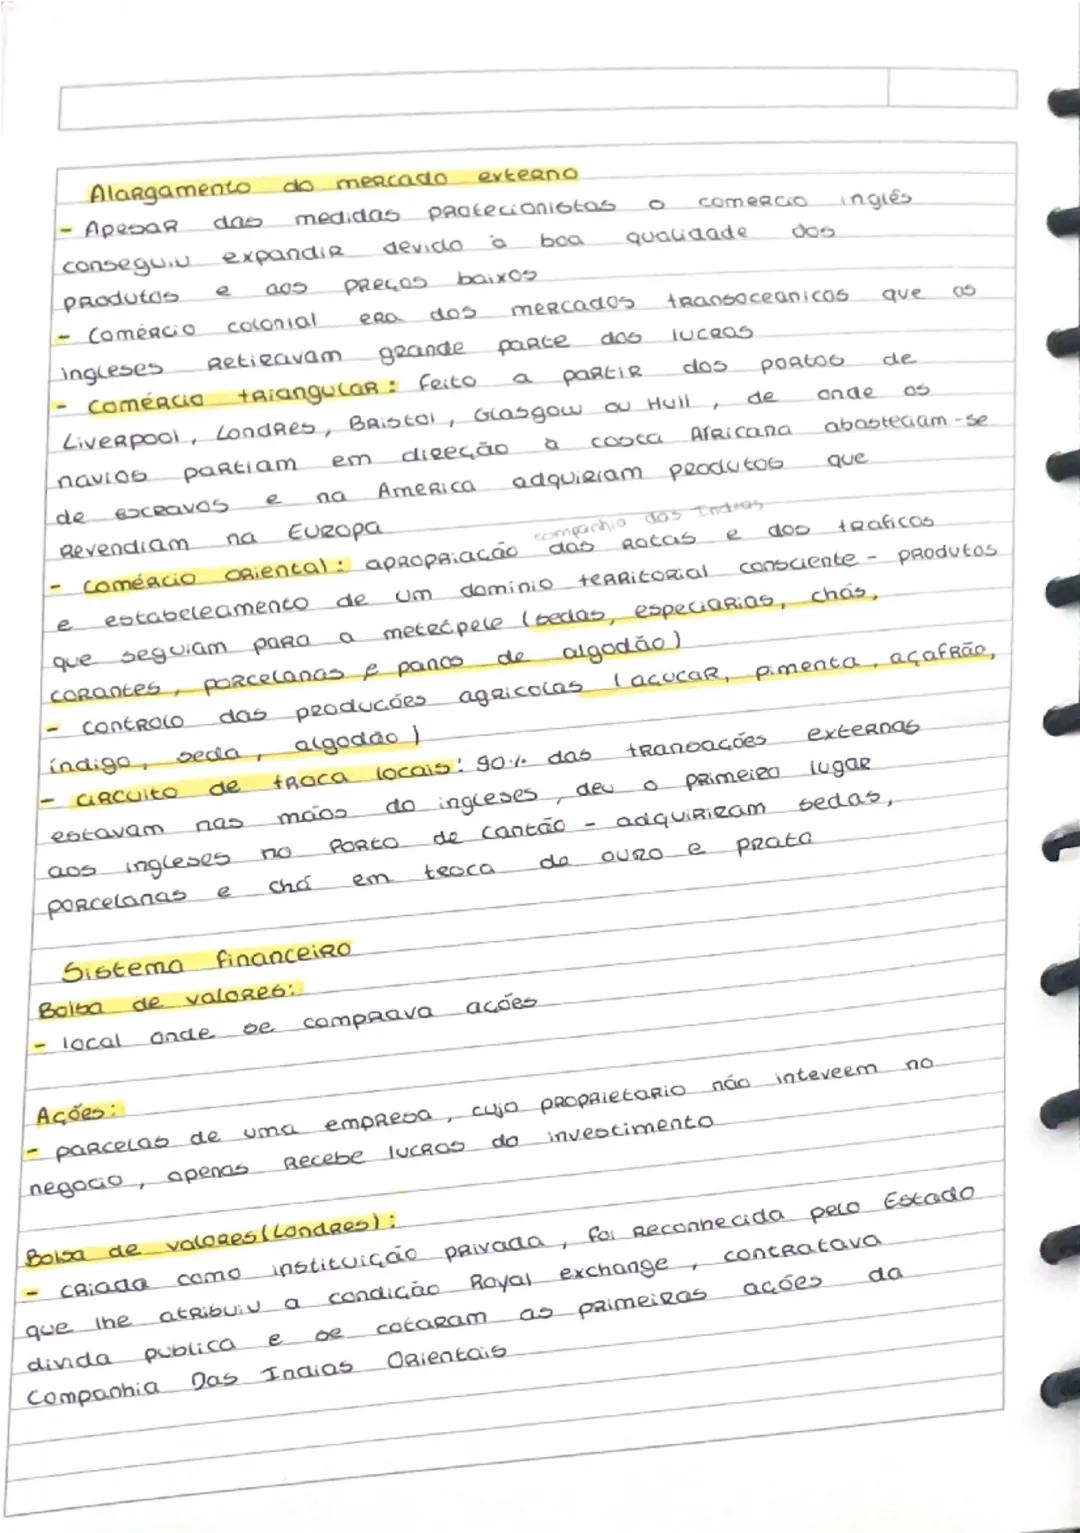 Alargamento do mercado externo
- Apesar das medidas protecionistas o comercio inglês
conseguiu expandir devido à boa qualidade dos
produtos e aos preços baixos
- Comércio colonial era dos mercados transoceanicos que os
ingleses retiravam grande parte dos lucros
- Comércio triangular: feito a partir dos portos de
Liverpool, Londres, Bristol, Glasgow ou Hull, de onde os
navios partiam em direção à costa Africana abasteciam-se
de escravos e na America adquiriam produtos que
revendiam na Europa
companhia das Indias
- comércio oriental: apropriação das rotas e dos traficos
e estabeleamento de um dominio territorial consciente - produtos
que seguiam para a metecpele (sedas, especiarias, chás,
corantes, porcelanas e panos de algodão)
- controlo das producões agricolas (acucar, pimenta, açafrão,
índigo, seda, algodão)
- circuito de troca locais: 90% das transações externas
estavam nas mãos do ingleses, deu o primeiro lugar
aos ingleses no porto de Cantão - adquiriram sedas,
porcelanas e chá em troca do ouro e prata
Sistema financeiro
Bolsa de valores:
- local onde se comprava ações
Ações:
- parcelas de uma empresa, cujo proprietario não inteveem no
negocio, apenas recebe lucros do investimento
Bolsa de valores (Londres):
- criada como instituição privada, foi reconhecida pelo Estado
que lhe atribuiu a condição Royal exchange, contratava
divida publica e se cotaram as primeiras ações da
Companhia Das Indias Orientais